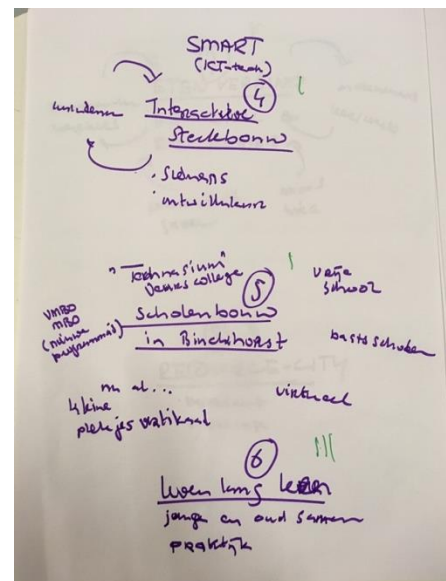 SMART
(ICT-team)
4
Interactieve
stedebouw
• Siemens
• ontwikkelaar
"Technasium"
college
5
vrije
school
VMBO
MBO
(nieuwe
programma's)
scholenbouw
in Binckhorst
basisscholen
nu al...
kleine
plekjes
virtueel
6
leven lang leren
jong en oud samen
praktijk